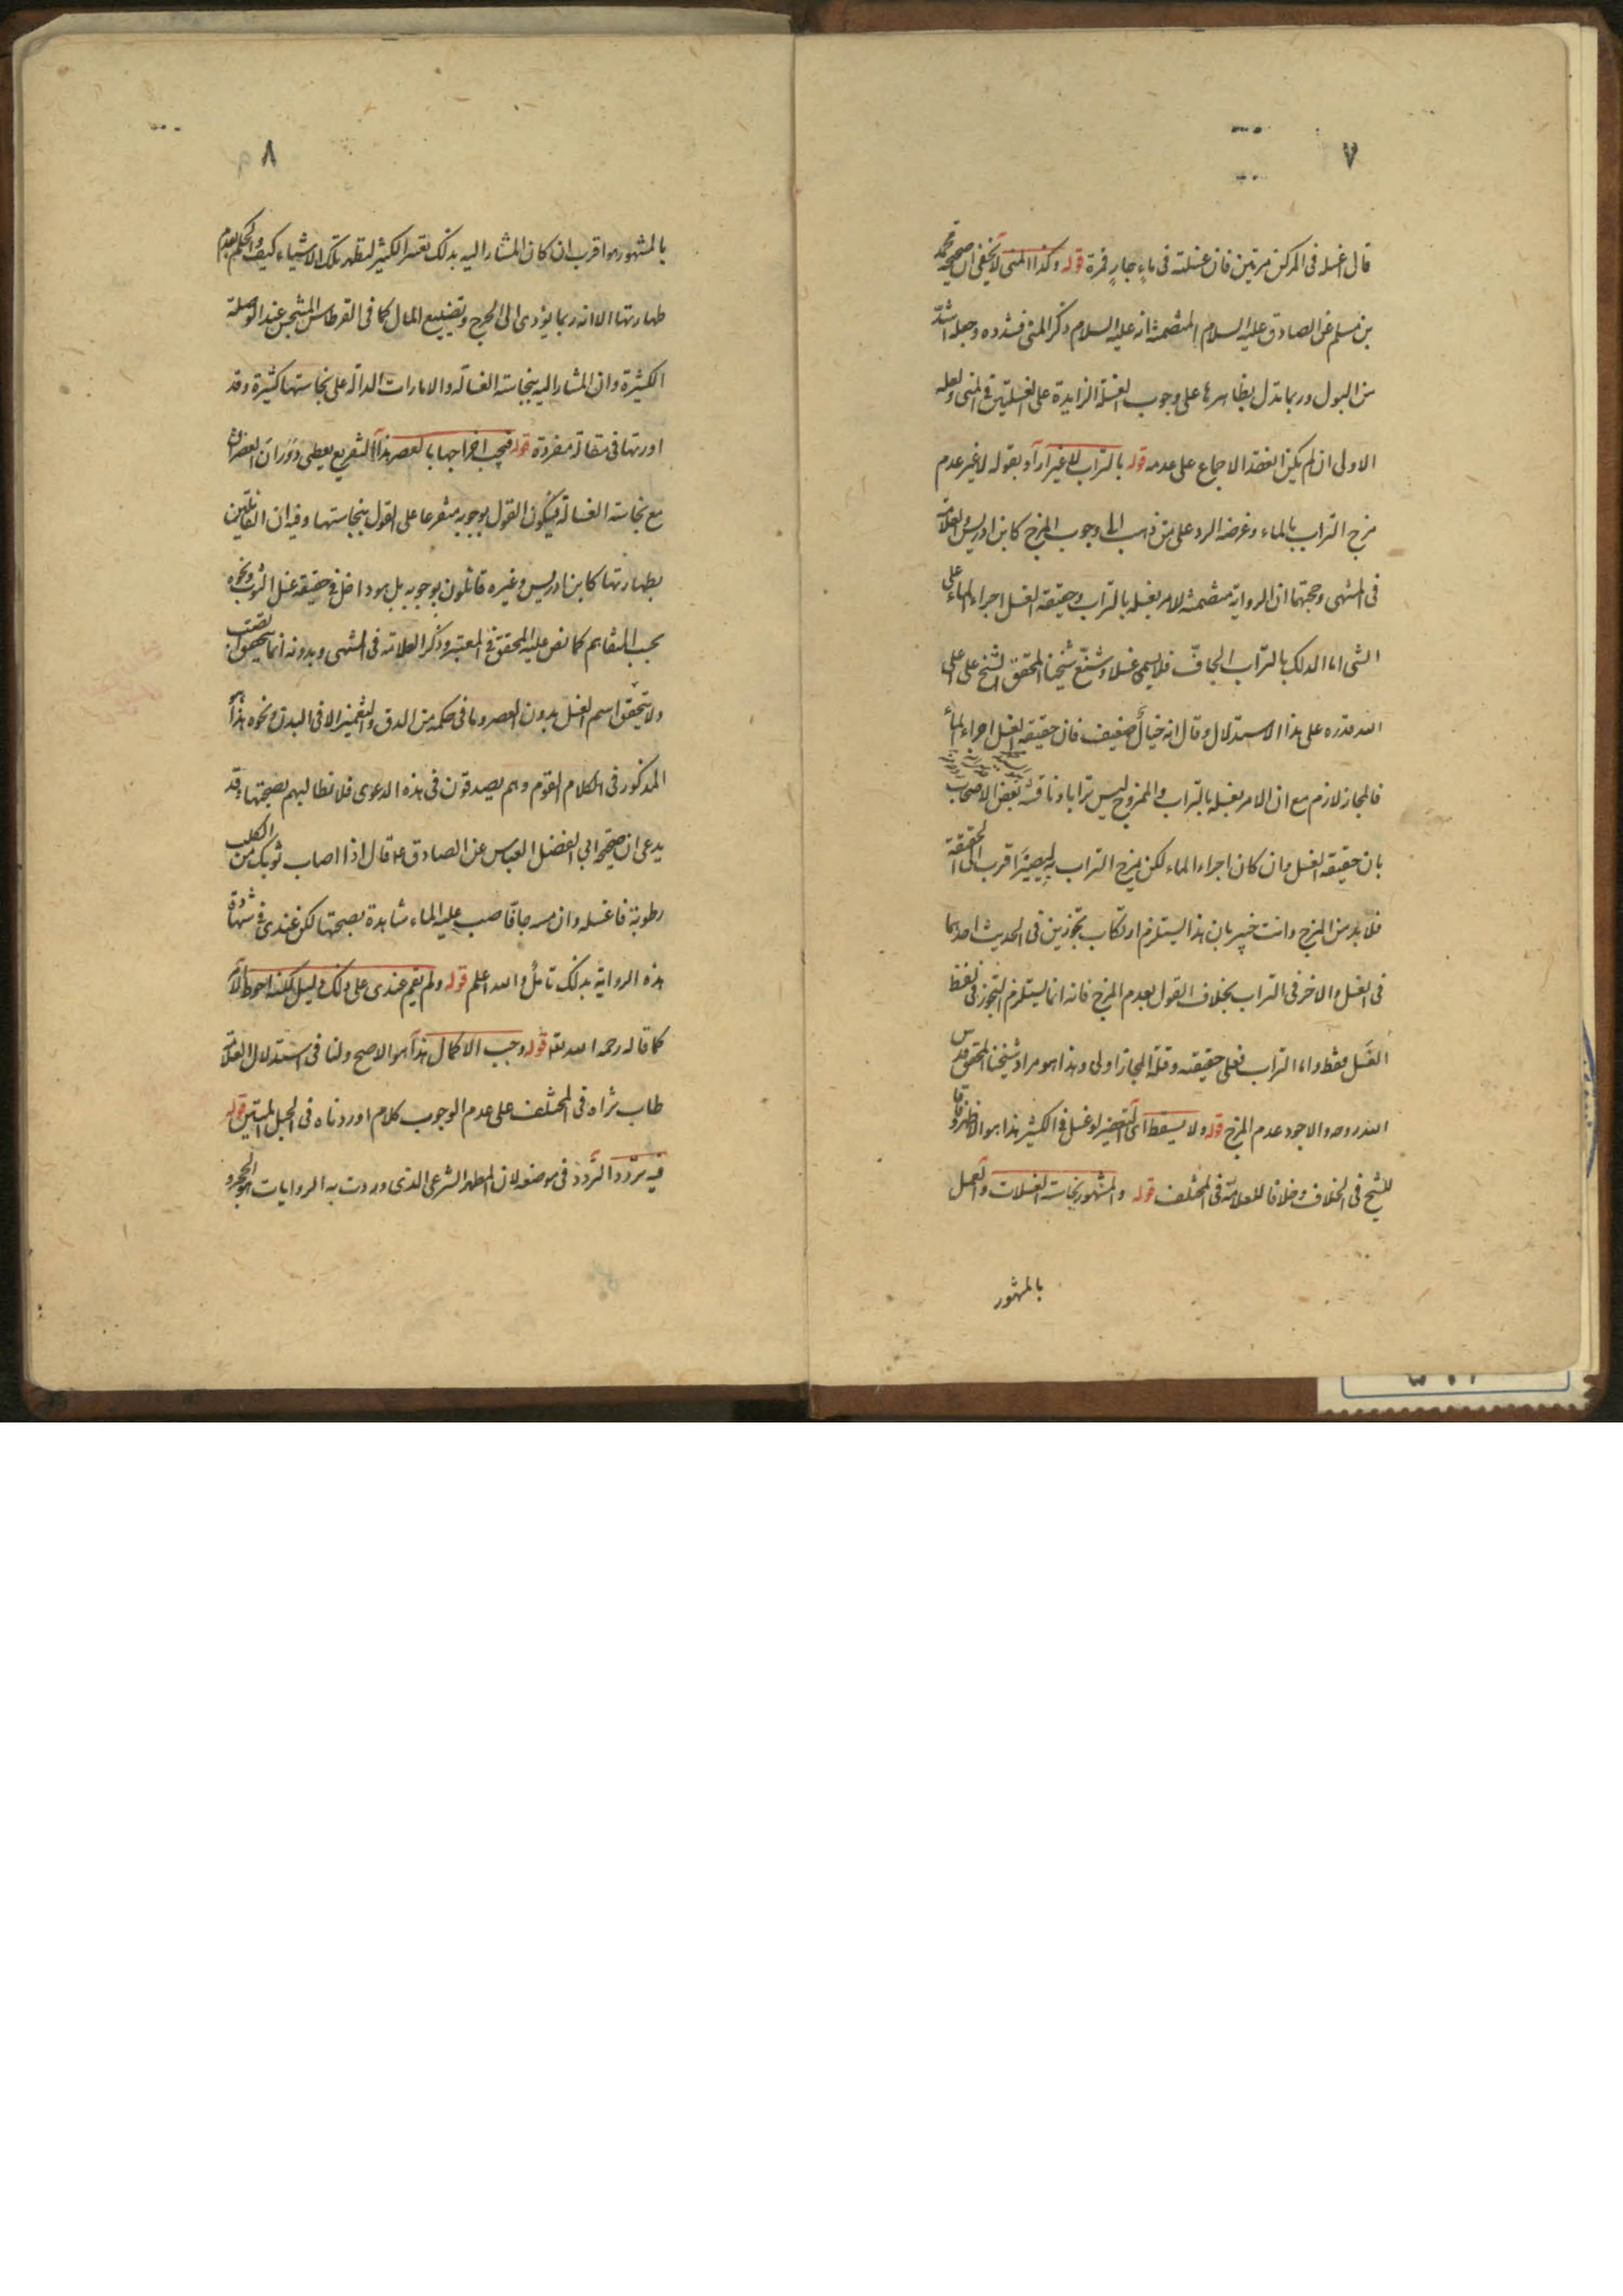 ٧
قال اغسله فى المركن مرتين فان غسلته فى ماءٍ جارٍ فمرة قوله وكذا المنى لا يخفى ان صحيحة محمد
بن مسلم عن الصادق عليه السلام المتضمنة انه عليه السلام ذكر المنى فشدده وجعله اشدّ
من البول وربما تدل بظاهرها على وجوب الغسلة الزايدة على الغسلتين فى المنى ولعله
الاولى ان لم يكن انعقد الاجماع على عدمه قوله بالتراب لا غير اراد بقوله لا غير عدم
مزج التراب بالماء وغرضه الرد على من ذهب الى وجوب المزج كابن ادريس والعلامة
فى المنتهى وحجتهما ان الرواية متضمنة للامر بغسله بالتراب وحقيقة الغسل اجراء الماء على
الشى اما الدلك بالتراب الجافّ فلا يسمى غسلا وشنّع شيخنا المحقق الشيخ على اعلى
الله قدره على هذا الاستدلال وقال انه خيال ضعيف فان حقيقة الغسل اجراء الماء
فالمجاز لازم مع ان الامر بغسله بالتراب والممزوج ليس ترابا وناقشه بعض الاصحاب
بان حقيقة الغسل وان كان اجراء الماء لكن بمزج التراب به ليصير اقرب الى الحقيقة
فلا بد من المزج وانت خبير بان هذا يستلزم ارتكاب تجوزين فى الحديث احدهما
فى الغسل والاخر فى التراب بخلاف القول بعدم المزج فانه انما يستلزم التجوز فى لفظ
الغسل فقط واما التراب فعلى حقيقته وقلة المجاز اولى وهذا هو مراد شيخنا المحقق قدس
الله روحه والاجود عدم المزج قوله ولا يسقط اى التعفير لو غسل فى الكثير هذا هو الاظهر وفاقا
للشيخ فى الخلاف وخلافا للعلامة فى المختلف قوله والمشهور نجاسة الغسلات والعمل
بالمشهور
٨
بالمشهور هو اقرب ان كان المشار اليه بذلك تعسر الكثير لتطهر تلك الاشياء كيف والحكم بعدم
طهارتها الا انه ربما يؤدى الى الحرج وتضييع المال كما فى القرطاس المتنجس عند الوصلة
الكثيرة وان المشار اليه بنجاسة الغسالة والامارات الدالة على نجاستها كثيرة وقد
اوردتها فى مقالة مفردة قوله فيجب اخراجها بالعصر هذا التفريع يعطى دوران العصر
مع نجاسة الغسالة فيكون القول بوجوبه متفرعا على القول بنجاستها وفيه ان القائلين
بطهارتها كابن ادريس وغيره قائلون بوجوبه بل هو داخل فى حقيقة غسل الثوب ونحوه
بحسب المفاهم كما نص عليه المحقق فى المعتبر وذكر العلامة فى المنتهى وبدونه انما يتحقق الصب
ولا يتحقق اسم الغسل بدون العصر وما فى حكمه من الدق والتغميز الا فى البدن ونحوه هذا هو
المذكور فى الكلام القوم وهم يصدقون فى هذه الدعوى فلا نطالبهم بصحتها وقد
يدعى ان صحيحة ابي الفضل العباس عن الصادق ع قال اذا اصاب ثوبك من الكلب
رطوبة فاغسله وان مسه جافا صب عليه الماء شاهدة بصحتها لكن عندى فى شهادة
هذه الرواية بذلك تامل والله اعلم قوله ولم يقم عندى على ذلك دليل لكنه احوط الامر
كما قاله رحمه الله قوله وجب الاكمال هذا هو الاصح ولنا فى استدلال العلامة
طاب ثراه فى المختلف على عدم الوجوب كلام اوردناه فى الحبل المتين قوله
فيه تردد التردد فى موضعه لان المطهر الشرعى الذى وردت به الروايات هو الحجر و